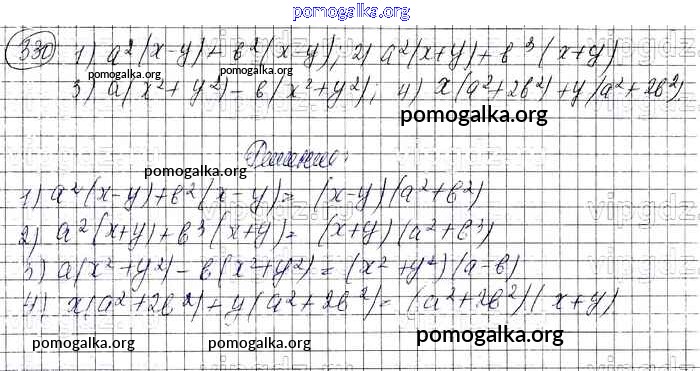 pomogalka.org
330 1) a²(x-y)+b²(x-y); 2) a²(x+y)+b³(x+y)
pomogalka.org
3) a(x²+y²)-b(x²+y²); 4) x(a²+2b²)+y(a²+2b²)
pomogalka.org
Решение:
pomogalka.org
1) a²(x-y)+b²(x-y)= (x-y)(a²+b²)
vipgdz
2) a²(x+y)+b³(x+y)= (x+y)(a²+b³)
3) a(x²+y²)-b(x²+y²)=(x²+y²)(a-b)
4) x(a²+2b²)+y(a²+2b²)=(a²+2b²)(x+y)
pomogalka.org pomogalka.org pomogalka.org